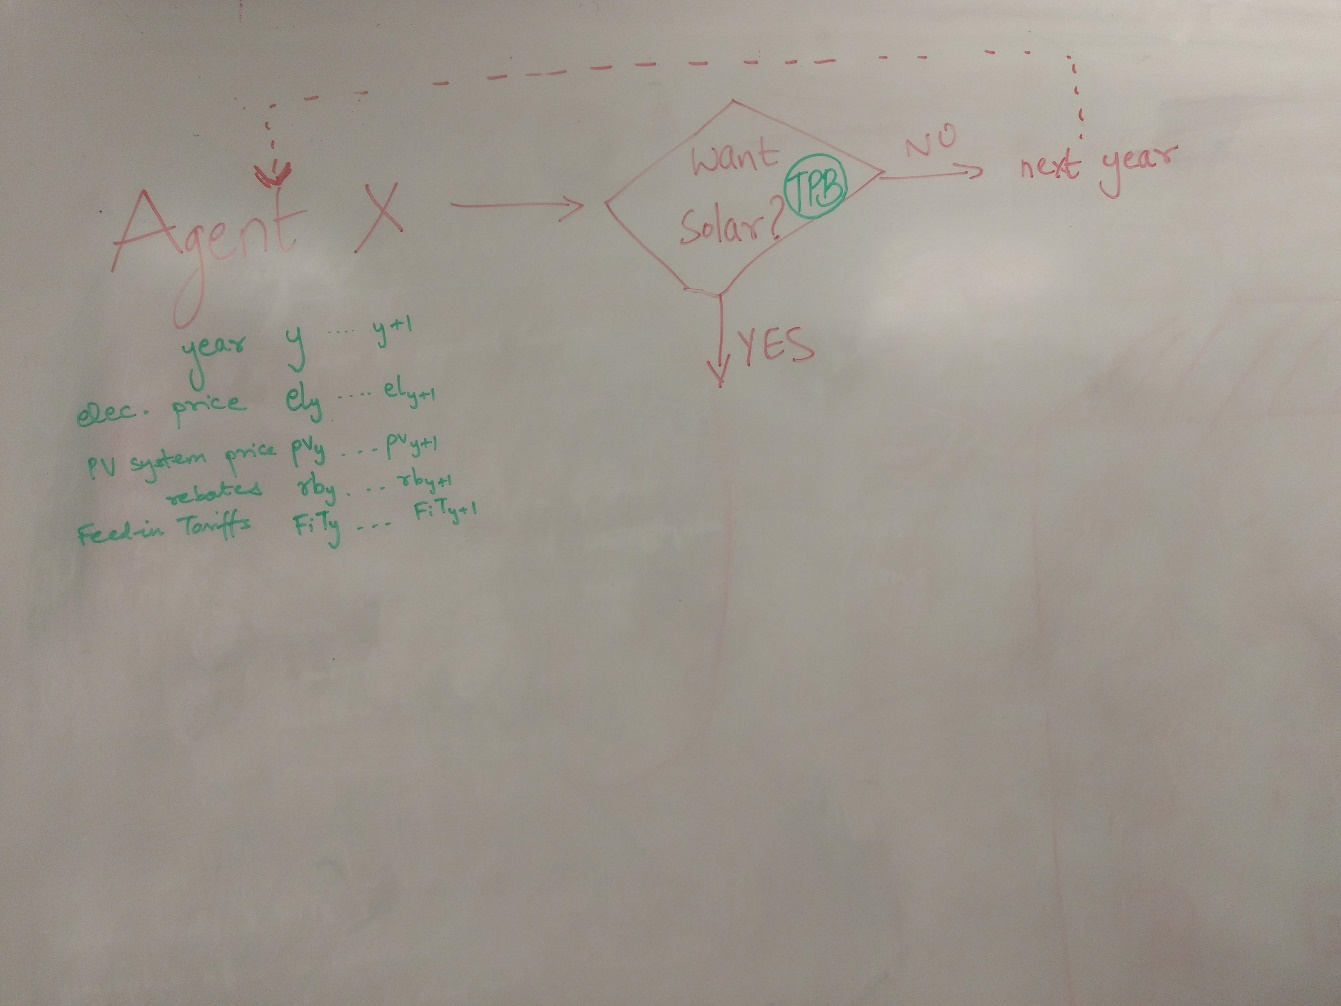 NO
want
TPB
next year
Agent X
Solar?
YES
year y .... y+1
elec. price ely .... ely+1
PV system price pvy ... pvy+1
rebates rby ... rby+1
Feed-in Tariffs FiTy ... FiTy+1